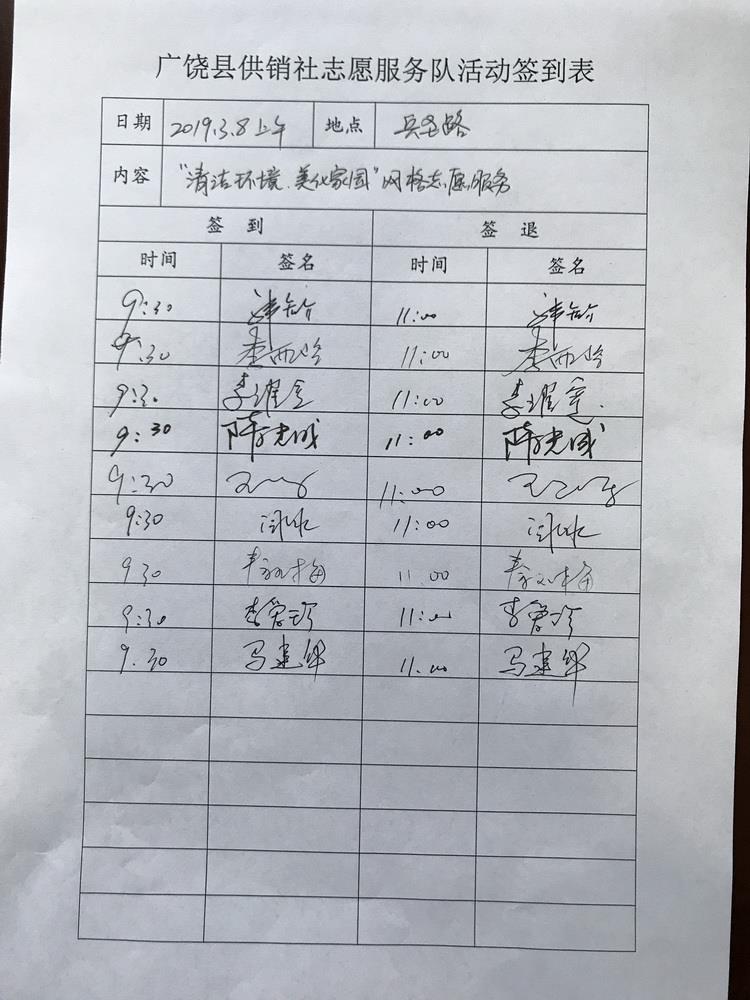 广饶县供销社志愿服务队活动签到表
日期 2019.3.8上午 地点 兵圣路
内容 "清洁环境、美化家园"网格志愿服务
签 到 签 退
时间 签名 时间 签名
9:30 11:00
9:30 李西玲 11:00 李西玲
9:30 李耀宝 11:00 李耀宝
9:30 陈志成 11:00 陈志成
9:30 11:00
9:30 闫冰 11:00 闫冰
9 30 11 00
9:30 李爱珍 11:00 李爱珍
9.30 马建华 11.00 马建华